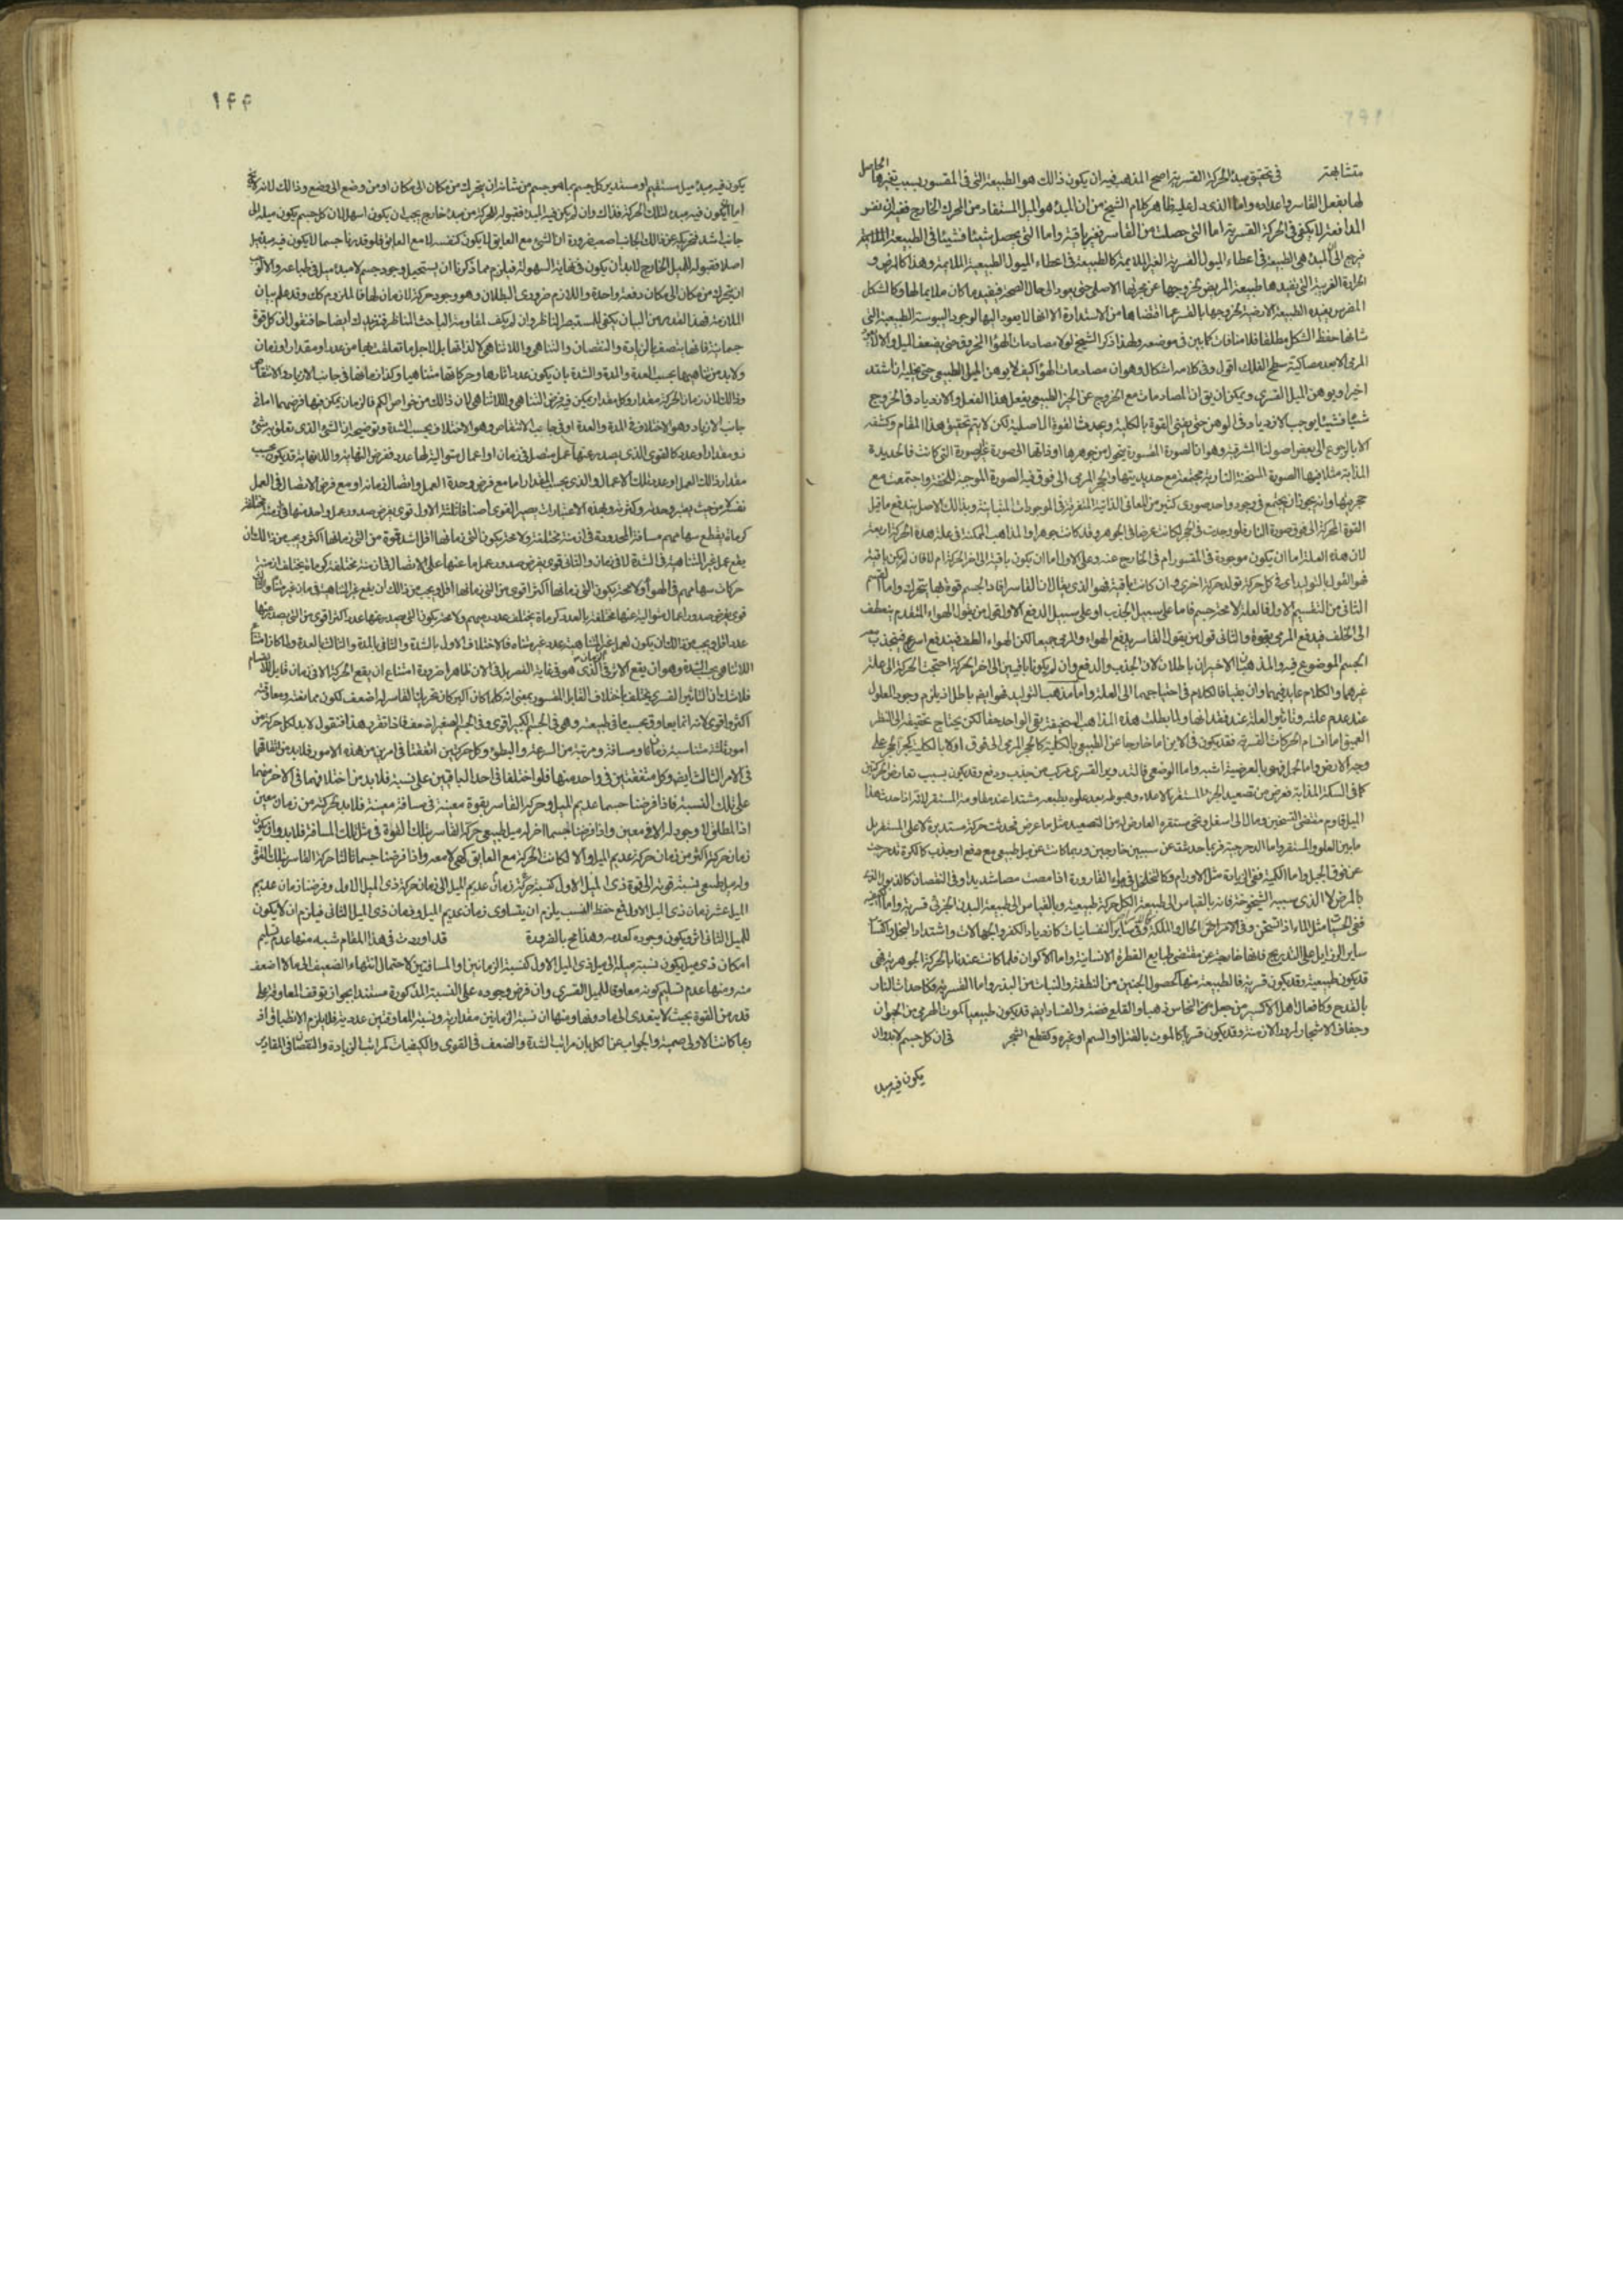 متشابهة في تحقيق مبدء الحركة القسرية اصح المذهب فيه ان يكون ذالك هو الطبيعة التي في المقسور بسبب تغيرها الحاصل
لها بفعل القاسر واعداده واما الذى دل عليه ظاهر كلام الشيخ من ان المبدء هو الميل المستفاد من المحرك الخارج ففيه ان نفس
المدافعة لا يكفى في الحركة القسرية اما التي حصلت من القاسر فغير باقية واما التي يحصل شيئا فشيئا في الطبيعة الملايمة
فرجع الى ان المبدء هى الطبيعة في اعطاء الميول القسرية الغير الملايمة كالطبيعة في اعطاء الميول الطبيعية الملايمة وهذا كالمرض و
الحرارة الغريبة التي تفيدها طبيعة المريض لخروجها عن مجريها الاصلى حتى يعود الى حال الصحة فيفيد ما كان ملايما لها وكالشكل
المضرس يفيده الطبيعة الارضية لخروجها بالقسر عما اقتضاها من الاستدارة الا انها لا يعود اليها لوجود اليبوسة الطبيعية التي
شانها حفظ الشكل مطلقا فلا منافات كما بين في موضعه ولهذا ذكر الشيخ لولا مصادمات الهواء المخروق حتى يضعف الميل والا
المرمى الا بعد مصاكة سطح الفلك اقول وفى كلامه اشكال وهو ان مصادمات الهواء كيف لا يوهن الميل الطبيعى حتى
اخيرا ويوهن الميل القسرى ويمكن ان يق ان المصادمات مع الخروج عن الحيز الطبيعى يفعل هذا الفعل والازدياد في الخروج
شيئا فشيئا يوجب الازدياد في الوهن حتى يفنى القوة بالكلية ويحدث القوة الاصلية لكن لا يتم تحقيق هذا المقام وكشفه
الا بالرجوع الى بعض اصولنا المشرقية وهو ان الصورة المقسورة يتحول من جوهرها الى صورة غير الصورة التي كانت فالحديدة
المذابة مثلا فيها الصورة المسخنة النارية مجتمعة مع حديديتها والحجر المرمى الى فوق فيه الصورة الموجبة للخفة واجتمعت مع
حجريتها وانه يجوز ان يجتمع في وجود واحد صورى كثير من المعانى الذاتية المتفرقة في الموجودات المتباينة وبذالك الاصل يندفع ما قيل
القوة المحركة الى فوق صورة النار فلو وجدت في الحجر لكانت عرضا في الجوهر وقد كانت جوهرا والمذاهب الممكنة في علة هذه الحركة اربعة
لان هذه العلة اما ان يكون موجودة في المقسور ام في الخارج عنه وعلى الاول اما ان يكون باقية الى اخر الحركة ام لا فان لم يكن باقية
فهو القول بالتوليد اى في كل حركة تولد حركة اخرى وان كانت باقية فهو الذى يقال ان القاسر افاد الجسم قوة بها يتحرك واما القسم
الثانى من التقسيم الاول فالعلة لا محة جسم فاما على سبيل الجذب او على سبيل الدفع الاول قول من يقول الهواء المتقدم ينعطف
الى الخلف فيدفع المرمى بقوة والثانى قول من يقول القاسر يدفع الهواء والمرمى جميعا لكن الهواء الطف فيندفع اسرع فينجذب معه
الجسم الموضوع فيه والمذهبان الاخيران باطلان لان الجذب والدفع وان لم يكونا باقيين الى اخر الحركة احتجت الحركة الى علة
غيرهما والكلام عايد فيهما وان بقيا فالكلام في احتياجهما الى العلة واما مذهب التوليد فهو ايضا باطل اذ يلزم وجود المعلول
عند عدم علته وتاثير العلة عند فقدانها ولما بطلت هذه المذاهب السخيفة بقى الواحد حقا لكن يحتاج تحقيقه الى النظر
العميق اما اقسام الحركات القسرية فقد يكون في الاين اما خارجا عن الطبيعى بالكلية كالحجر المرمى الى فوق اولا بالكلية كجر الحجر على
وجه الارض واما الحمل فهو بالعرضية اشبه واما الوضعى فالتدوير القسرى مركب من جذب ودفع وقد يكون بسبب تعارض الحركتين
كما في السكة المذابة فعرض من تصعيد الحر المستقر الاعلاء وهبوطه بعد علوه بطبعه مشتدا عند مقاومة المستقر
الميل قاوم مقتضى التسخين ومال الى اسفل ونحى مستقره العارض له من التصعيد مثل ما عرض فحدثت حركة مستديرة لا على المستقر بل
ما بين العلو والمستقر واما الدحرجة فربما حدثت عن سببين خارجين وربما كانت عن ميل طبيعى مع دفع او جذب كالكرة تدحرجت
عن فوق الجبل واما الكمية ففى الزيادة مثل الاورام وكالتخلخل في هواء القارورة اذا مصت مصا شديدا وفى النقصان كالذبول الذى
بالمرض لا الذى سببه الشيخوخة فانه بالقياس الى طبيعة الكل حركة طبيعية وبالقياس الى طبيعة البدن الجزئى قسرية واما الكيفية
ففى الحسيات مثل الماء اذا تسخن وفى الامراض والحال والملكة وفى ساير النفسانيات كازدياد الكفر والجهالات واشتداد البخل وكتساب
ساير الرذايل على التدريج فانها خارجة عن مقتضى طبايع الفطرة الانسانية واما الاكوان فلما كانت عندنا بالحركة الجوهرية فهى
قد يكون طبيعية وقد يكون قسرية فالطبيعة منها كحصول الجنين من النطفة والنبات من البذر واما القسرية فكاحداث النار
بالقدح وكافعال اهل الاكسير من جعل النحاس ذهبا والقلع فضة والفساد ايضا قد يكون طبيعيا كموت الهرمى من الحيوان
وجفاف الاشجار لمرور الازمنة وقد يكون قسريا كالموت بالقتل او السم او غيره وكقطع الشجر في ان كل جسم لابد وان
يكون فيه مبدء
۱۴۴
يكون فيه مبدء ميل مستقيم او مستدير كل جسم بما هو جسم من شانه ان يتحرك من مكان الى مكان او من وضع الى وضع وذالك لانه لا يخ
اما ان يكون فيه مبدء لتلك الحركة فذاك وان لم يكن فيه المبدء فقبوله للحركة من مبدء خارج يجب ان يكون اسهل لان كل جسم يكون ميله الى
جانب اشد فتحريكه عن ذالك الجانب اصعب ضرورة ان الشئ مع العايق لا يكون كنفسه لا مع العايق فلو قدرنا جسما لا يكون فيه مبدء ميل
اصلا فقبوله للميل الخارج لابد ان يكون في نهاية السهولة فيلزم مما ذكرنا ان يستحيل وجود جسم لا مبدء ميل في طباعه والا لوجب
ان يتحرك من مكان الى مكان دفعة واحدة واللازم ضرورى البطلان وهو وجود حركة لا زمان لها فالملزوم كك وقد علم بيان
الملازمة فهذا القدر من البيان يكفى للمستبصر الناظر وان لم يكف لمقاومة الباحث المناظر فنزيدك ايضاحا فنقول ان كل قوة
جسمانية فانها يتصف بالزيادة والنقصان والتناهى واللاتناهى لا لذاتها بل لاجل ما تعلقت بها من عدد او مقدار او زمان
ولابد من تناهيها بحسب العدة والمدة والشدة بان يكون عدد اثارها وحركاتها متناهيا وكذا زمانها في جانب الازدياد والانتقاص
وذالك لان زمان الحركة مقدار وكل مقدار يمكن فيه فرض التناهى واللاتناهى لان ذالك من خواص الكم فالزمان يمكن فيها فرضهما اما في
جانب الازدياد وهو الاختلاف في المدة والعدة او في جانب الانتقاص وهو الاختلاف بحسب الشدة وتوضيحه ان الشئ الذى تعلق به شئ
ذو مقدار او عدد كالقوى الذى يصدر عنها عمل متصل في زمان او اعمال متوالية لها عدد ففرض النهاية واللانهاية قد يكون بحسب
مقدار ذالك العمل او عدد تلك الاعمال والذى بحسب المقدار اما مع فرض وحدة العمل واتصال زمانه او مع فرض الاتصال في العمل
نفسه لا من حيث يعتبر وحدته وكثرته وبهذه الاعتبارات يصير القوى اصنافا ثلثة الاول قوى يفرض صدور عمل واحد منها في ازمنة مختلفة
كرماة يقطع سهامهم مسافة محدودة في ازمنة مختلفة ولا محة يكون التي زمانها اقل اشد قوة من التي زمانها اكثر ويجب من ذالك ان
يقع عمل غير المتناهية في الشدة لا في زمان والثانى قوى يفرض صدور عمل ما عنها على الاتصال في ازمنة مختلفة كرماة يختلف ازمنة
حركات سهامهم في الهواء ولا محة يكون التي زمانها اكثر اقوى من التي زمانها اقل ويجب من ذالك ان يقع غير المتناهية في زمان غير متناه والثالث
قوى يفرض صدور اعمال متوالية عنها مختلفة بالعدد كرماة يختلف عدد رميهم ولا محة يكون التي يصدر عنها عدد اكثر اقوى من التي يصدر عنها
عدد اقل ويجب من ذالك ان يكون لعمل غير المتناهية عدد غير متناه فالاختلاف الاول بالشدة والثانى بالمدة والثالث بالعدة ولما كان امتناع
اللاتناهى بحسب الشدة وهو ان يقع الاثر في الزمان الذى هو في غاية القصر بل في الان ظاهرا ضرورة امتناع ان يقع الحركة الا في زمان قابل للانقسام
فلا شك ان التاثير القسرى يختلف باختلاف القابل المقسور بمعنى انه كلما كان اكبر كان تحريك القاسر له اضعف لكون ممانعته ومعاوقته
اكثر واقوى لانه انما يعاوق بحسب ما في طبيعته وهى في الجسم الكبير اقوى وفى الجسم الصغير اضعف فاذا تقرر هذا فنقول لابد لكل حركة من
امور ثلثة متناسبة زمان ما ومسافة ومرتبة من السرعة والبطوء وكل حركتين اتفقتا في امرين من هذه الامور فلابد من اتفاقهما
في الامر الثالث ايضا وكل متفقتين في واحد منها فلو اختلفا في احد الباقيين على نسبة فلابد من اختلافهما في الاخر منهما
على تلك النسبة فاذا فرضنا جسما عديم الميل وحركه القاسر بقوة معينة في مسافة معينة فلابد لحركته من زمان معين
اذ المطلق لا وجود له الا في معين واذا فرضنا جسما اخر له ميل طبيعى حركه القاسر بتلك القوة في مثل تلك المسافة فلابد وان يكون
زمان حركته اكثر من زمان حركة عديم الميل والا لكانت الحركة مع العايق كهى لا معه واذا فرضنا جسما ثالثا حركه القاسر بتلك القوة
وله ميل طبيعى نسبة قوته الى قوة ذى الميل الاول كنسبة زمان حركة عديم الميل الى زمان حركة ذى الميل الاول وفرضنا زمان عديم
الميل عشر زمان ذى الميل الاول فمع حفظ النسب يلزم ان يتساوى زمان عديم الميل وزمان ذى الميل الثانى فيلزم ان لا يكون
للميل الثانى اثر ويكون وجوده كعدمه وهذا مح بالضرورة قد اوردت في هذا المقام شبه منها عدم تسليم
امكان ذى ميل يكون نسبة ميله الى ميل ذى الميل الاول كنسبة الزمانين او المسافتين لاحتمال انتهاء الضعيف الى ما لا اضعف
منه ومنها عدم تسليم كونه معاوقا للميل القسرى وان فرض وجوده على النسبة المذكورة مستندا بجواز توقف المعاوقة على
قدر من القوة بحيث لا يتعدى الى ما دونها ومنها ان نسبة الزمانين مقدارية ونسبة المعاوقتين عددية فلا يلزم الانطباق اذ
ربما كانت الاولى صمية والجواب عن الكل بان مراتب الشدة والضعف في القوى والكيفيات كمراتب الزيادة والنقصان في المقادير